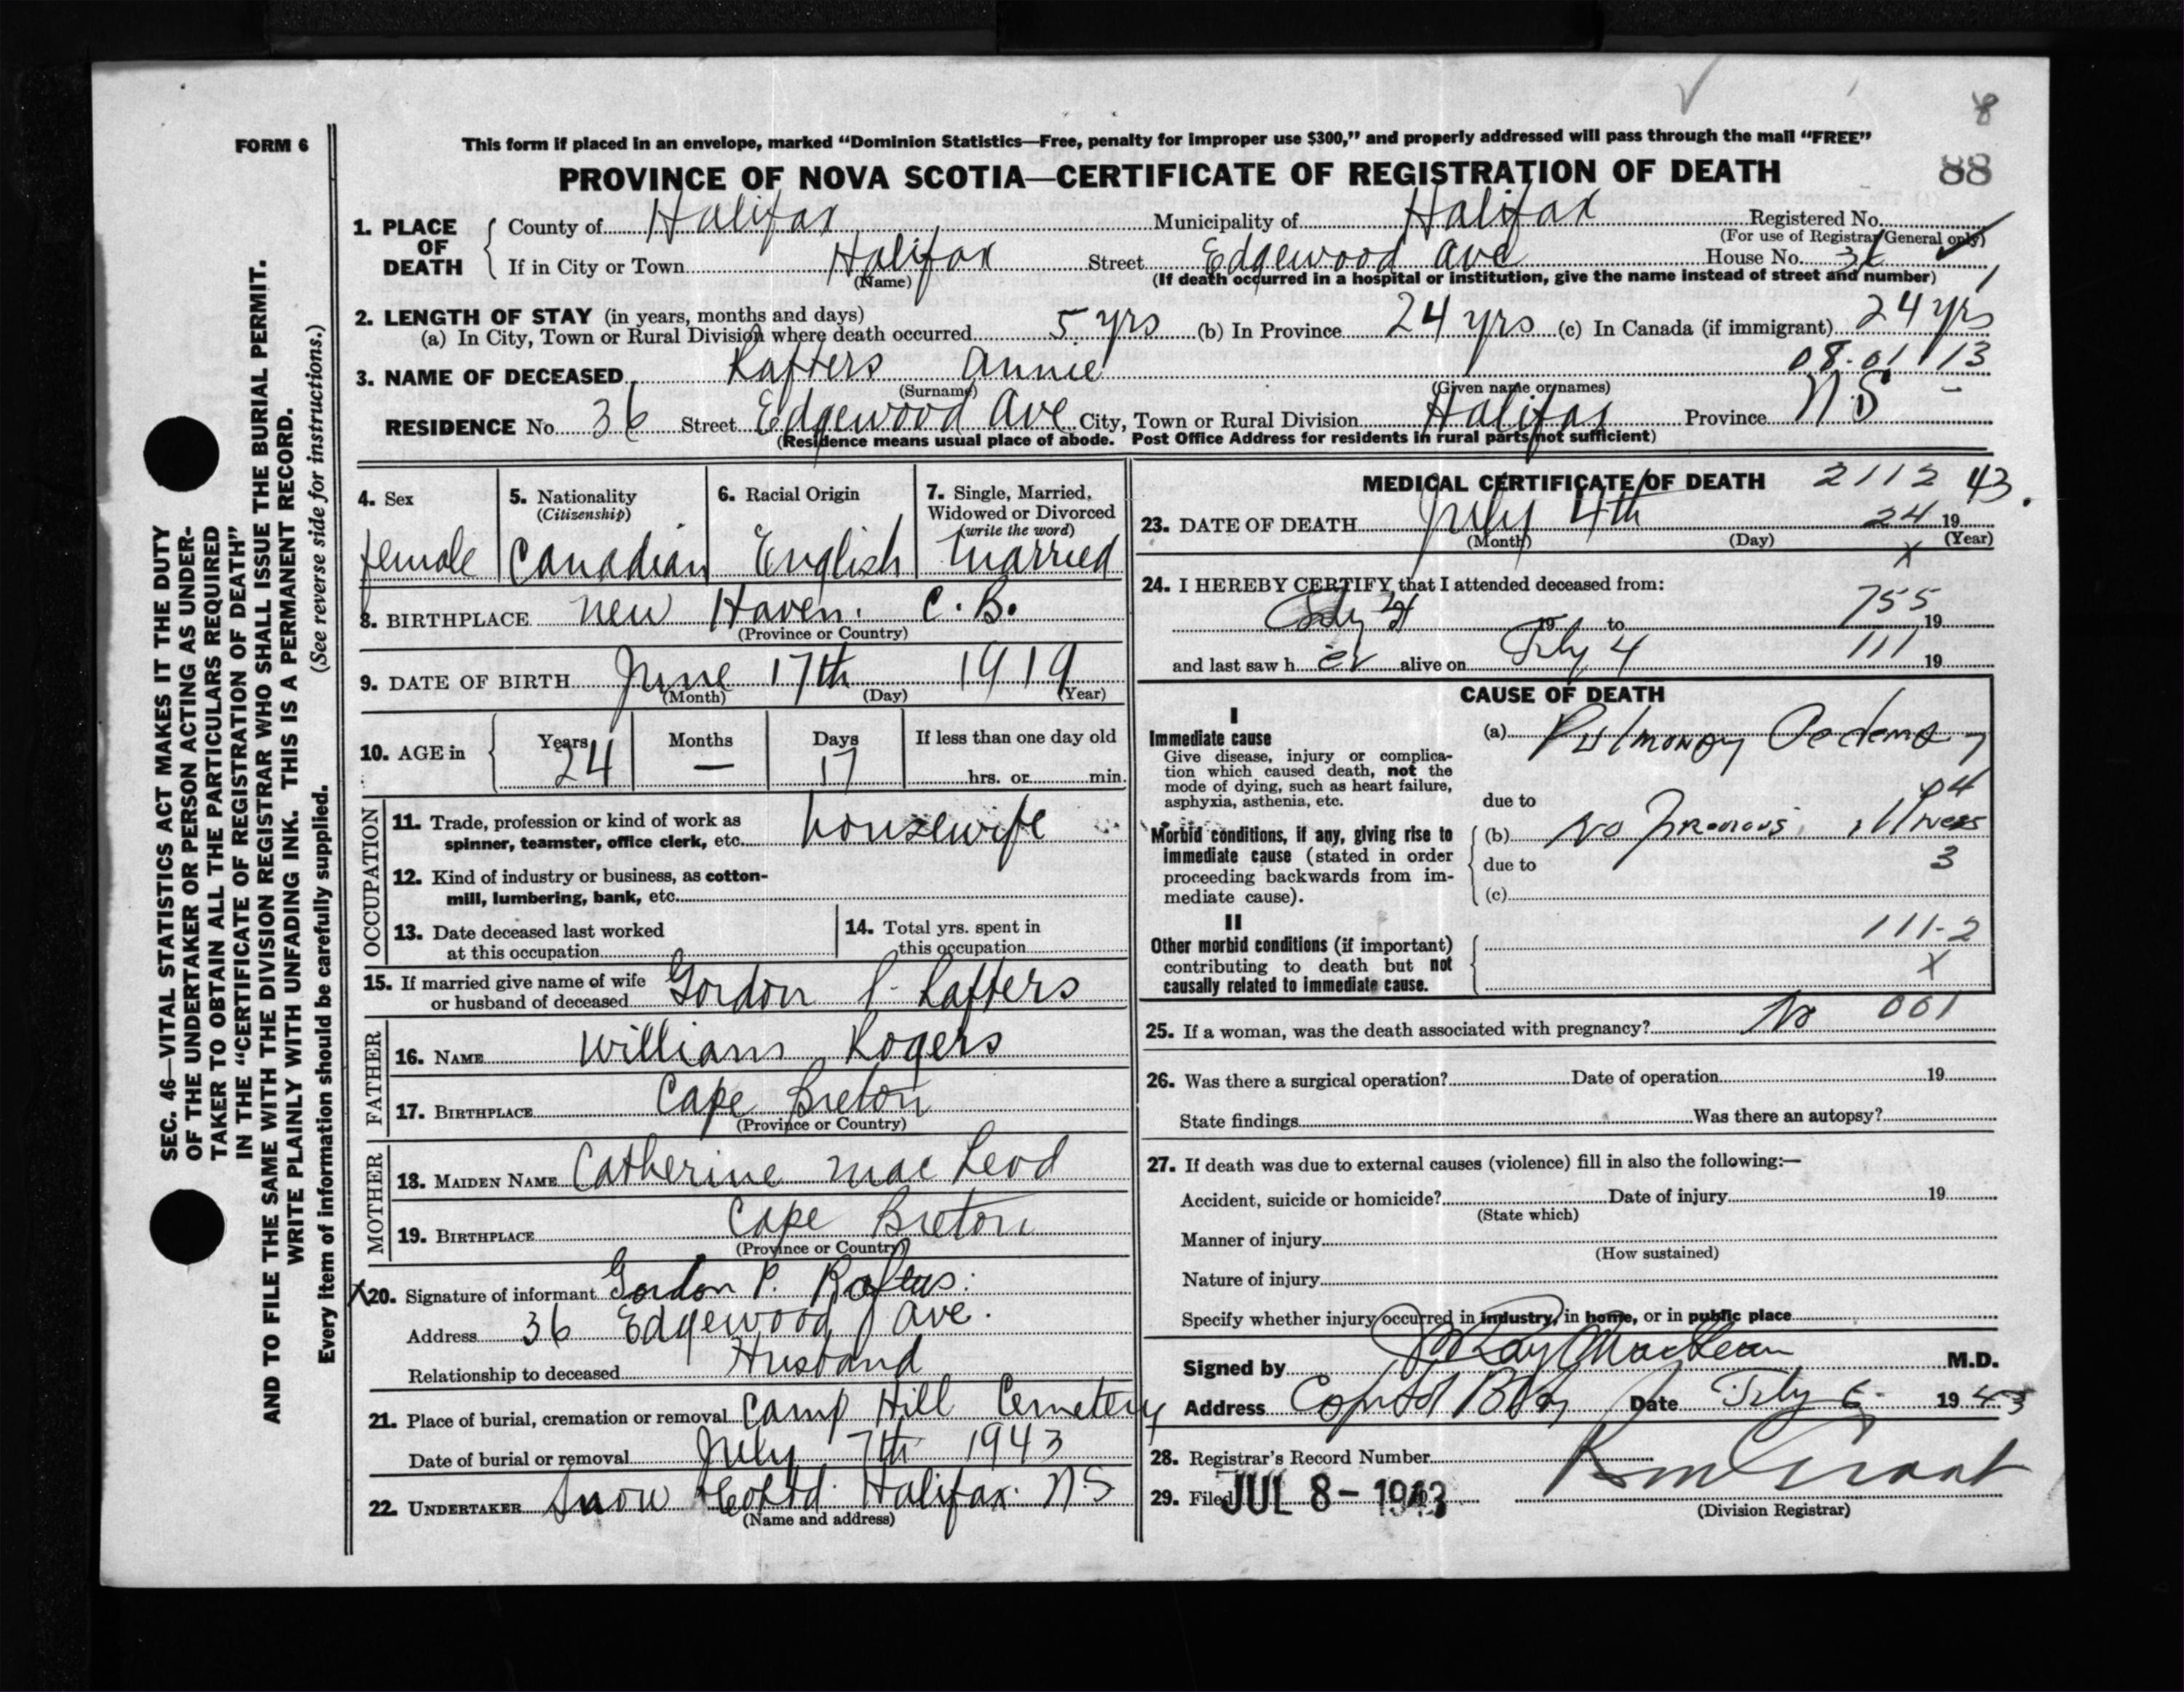 8
FORM 6
This form if placed in an envelope, marked “Dominion Statistics—Free, penalty for improper use $300,” and properly addressed will pass through the mail “FREE”
PROVINCE OF NOVA SCOTIA—CERTIFICATE OF REGISTRATION OF DEATH 88
1. PLACE OF DEATH County of Halifax Municipality of Halifax Registered No.
(For use of Registrar General only)
If in City or Town Halifax Street Edgewood Ave House No. 36
(Name) (If death occurred in a hospital or institution, give the name instead of street and number)
2. LENGTH OF STAY (in years, months and days)
(a) In City, Town or Rural Division where death occurred 5 yrs (b) In Province 24 yrs (c) In Canada (if immigrant) 24 yrs
08.01113
3. NAME OF DECEASED Rafters Annie
(Surname) (Given name or names)
RESIDENCE No. 36 Street Edgewood Ave City, Town or Rural Division Halifax Province N.S
(Residence means usual place of abode. Post Office Address for residents in rural parts not sufficient)
4. Sex female
5. Nationality (Citizenship) Canadian
6. Racial Origin English
7. Single, Married, Widowed or Divorced (write the word) Married
8. BIRTHPLACE New Haven. C.B.
(Province or Country)
9. DATE OF BIRTH June 17th 1919
(Month) (Day) (Year)
10. AGE in Years 24 Months — Days 17 If less than one day old
hrs. or min.
OCCUPATION
11. Trade, profession or kind of work as
spinner, teamster, office clerk, etc. housewife
12. Kind of industry or business, as cotton-
mill, lumbering, bank, etc.
13. Date deceased last worked
at this occupation
14. Total yrs. spent in
this occupation
15. If married give name of wife
or husband of deceased Gordon P. Rafters
FATHER
16. NAME William Rogers
17. BIRTHPLACE Cape Breton
(Province or Country)
MOTHER
18. MAIDEN NAME Catherine Mac Leod
19. BIRTHPLACE Cape Breton
(Province or Country)
X20. Signature of informant Gordon P. Rafters.
Address 36 Edgewood Ave.
Relationship to deceased Husband
21. Place of burial, cremation or removal Camp Hill Cemetery
Date of burial or removal July 7th 1943
22. UNDERTAKER Snow & Co Ltd. Halifax. N.S
(Name and address)
MEDICAL CERTIFICATE OF DEATH 2112 43.
23. DATE OF DEATH July 4th 24 19
(Month) (Day) (Year)
X
24. I HEREBY CERTIFY that I attended deceased from:
July 19 to 755 19
and last saw h er alive on July 4 111 19
CAUSE OF DEATH
I
Immediate cause
Give disease, injury or complica-
tion which caused death, not the
mode of dying, such as heart failure,
asphyxia, asthenia, etc.
(a) Pulmonary Oedema
due to 04
Morbid conditions, if any, giving rise to
immediate cause (stated in order
proceeding backwards from im-
mediate cause).
(b) No previous illness
due to 3
(c)
II
Other morbid conditions (if important)
contributing to death but not
causally related to immediate cause.
111-2
X
25. If a woman, was the death associated with pregnancy? No 001
26. Was there a surgical operation? Date of operation 19
State findings Was there an autopsy?
27. If death was due to external causes (violence) fill in also the following:—
Accident, suicide or homicide? Date of injury 19
(State which)
Manner of injury
(How sustained)
Nature of injury
Specify whether injury occurred in industry, in home, or in public place
Signed by M.D.
Address Date July 6 1943
28. Registrar's Record Number
29. Filed JUL 8 - 1943
(Division Registrar)
SEC. 46—VITAL STATISTICS ACT MAKES IT THE DUTY
OF THE UNDERTAKER OR PERSON ACTING AS UNDER-
TAKER TO OBTAIN ALL THE PARTICULARS REQUIRED
IN THE “CERTIFICATE OF REGISTRATION OF DEATH”
AND TO FILE THE SAME WITH THE DIVISION REGISTRAR WHO SHALL ISSUE THE BURIAL PERMIT.
WRITE PLAINLY WITH UNFADING INK. THIS IS A PERMANENT RECORD.
Every item of information should be carefully supplied. (See reverse side for instructions.)